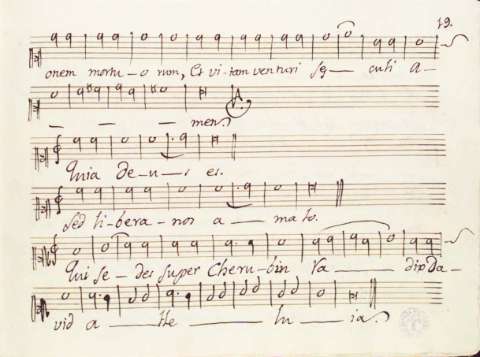 19.
onem mortu-o rum, Et vi-tam venturi sę— culi a-
— — — men.
Quia de-u-s es.
Sed li-bera-nos a — ma lo.
Qui se-des super Cheru-bin Va — dip Da-
vid a — lle — lu — ia.